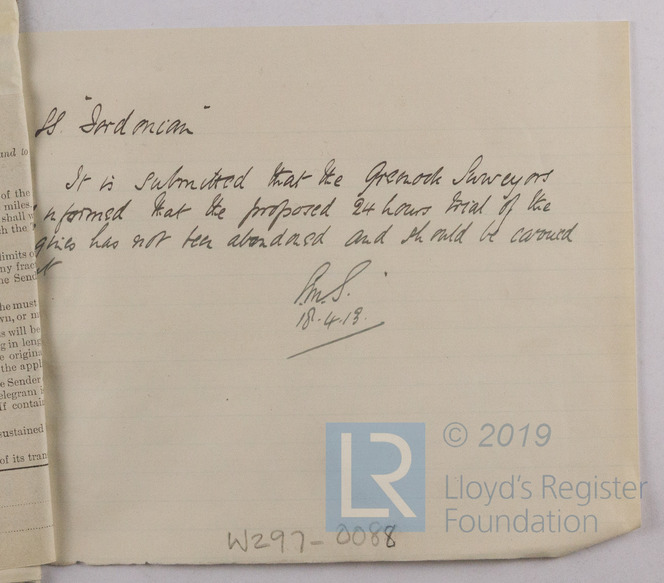 ss "Jordonian"
It is submitted that the Greenock Surveyors
informed that the proposed 24 hours trial of the
has not been abandoned and should be carried
P.M.S.
18.4.13.
W297-0088
© 2019
LR
Lloyd's Register
Foundation
and to
of the
miles.
shall
h the
limits o
ny frac
he Send
he must
wn, or
s will be
g in leng
e origin
the appl
e Sender
elegram
If contai
sustained
of its tran